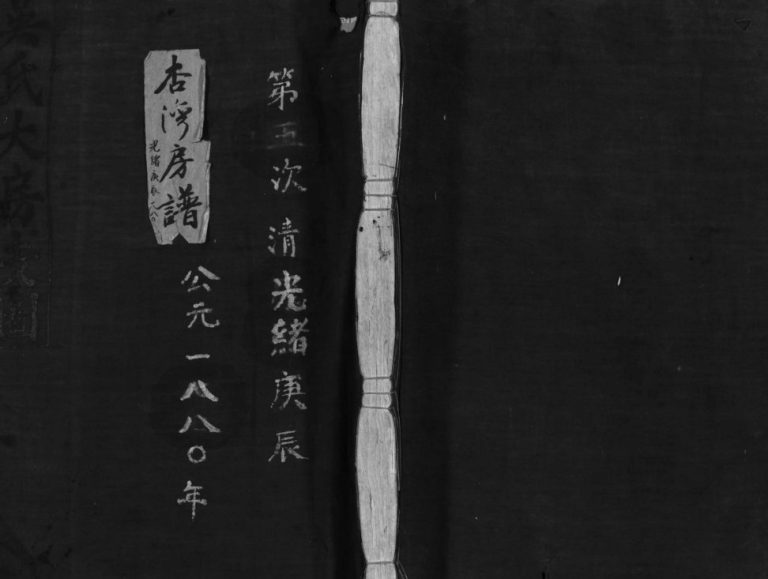 第五次 清光緒庚辰
公元一八八〇年
杏灣房譜
光緒庚辰一八八〇
吳氏大房